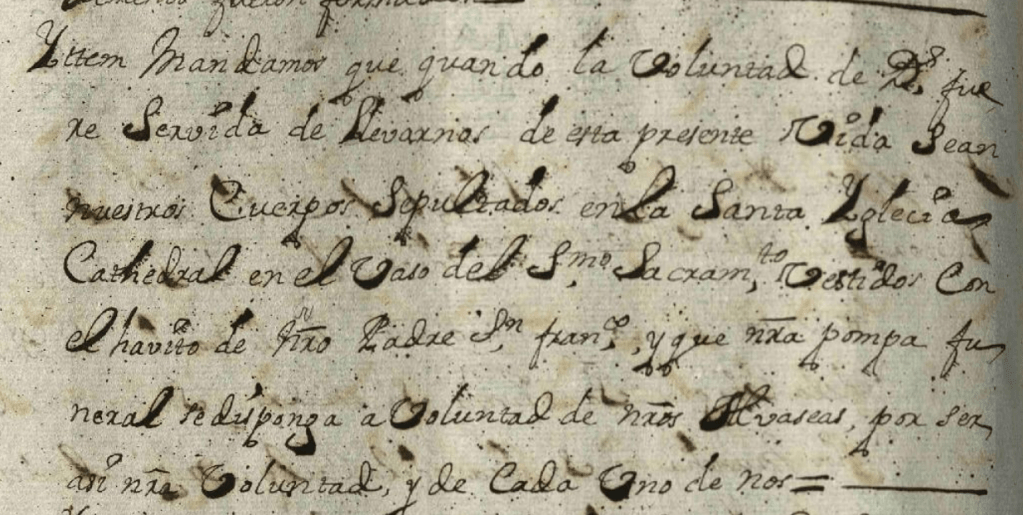 Yttem Mandamos que quando la Voluntad de Ds. fue
re Servida de llevarnos de esta presente Vida Sean
nuestros Cuerpos Sepultados en la Santa Yglecia
Cathedral en el Vaso del Smo. Sacramto. Vestidos Con
el havito de Nro Padre Sn. Franco., y que nra pompa fu
neral se disponga a Voluntad de nros Alvaseas, por ser
asi nra Voluntad, y de Cada Uno de nos =